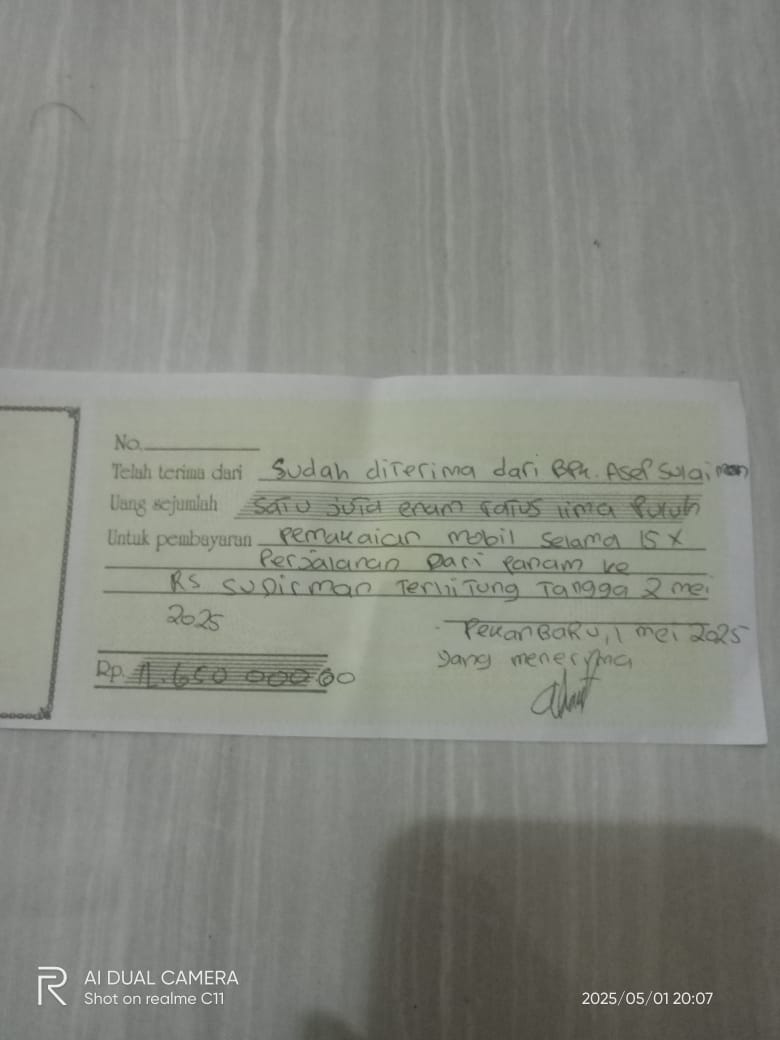 No.
Telah terima dari Sudah diterima dari BPk. Asep Sulaiman
Uang sejumlah satu juta enam ratus lima puluh
Untuk pembayaran Pemakaian mobil selama 15 x
Perjalanan Dari Panam ke
RS Sudirman Terhitung Tangga 2 mei
2025
PekanBaRu, 1 mei 2025
yang meneryma
Rp. 1.650 000 00
AI DUAL CAMERA
Shot on realme C11
2025/05/01 20:07